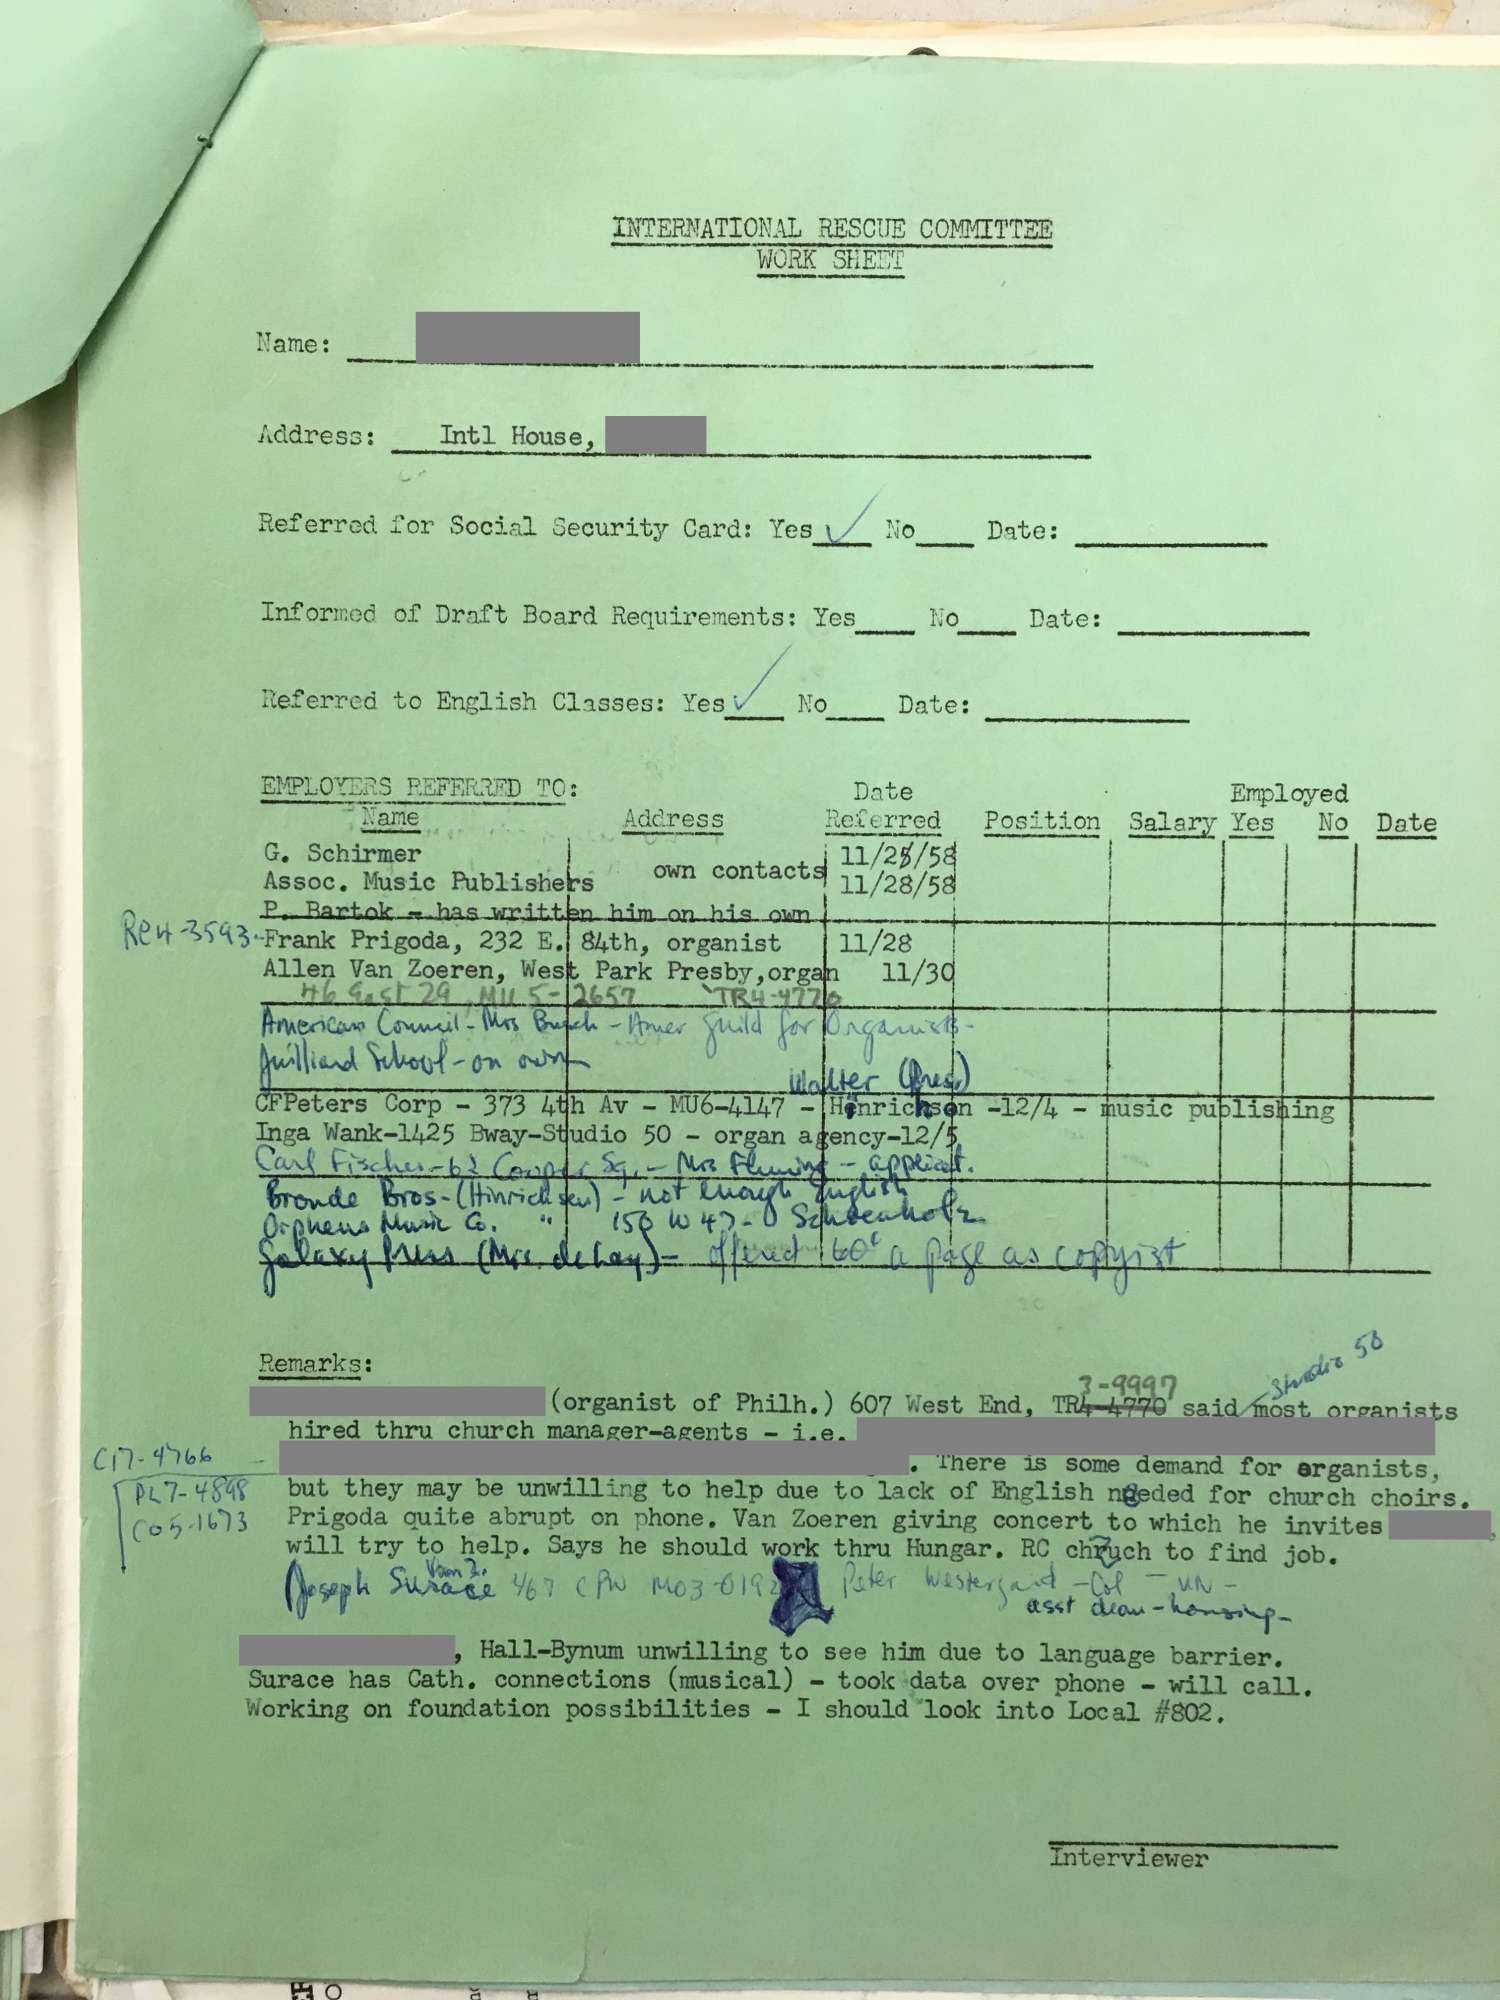 INTERNATIONAL RESCUE COMMITTEE
WORK SHEET
Name:
Address: Intl House,
Referred for Social Security Card: Yes ✓ No Date:
Informed of Draft Board Requirements: Yes No Date:
Referred to English Classes: Yes ✓ No Date:
EMPLOYERS REFERRED TO:
Name Address Date Referred Position Salary Employed Yes No Date
G. Schirmer own contacts 11/28/58
Assoc. Music Publishers 11/28/58
P. Bartok - has written him on his own
Re4-3593 - Frank Prigoda, 232 E. 84th, organist 11/28
Allen Van Zoeren, West Park Presby,organ 11/30
46 East 29, MU 5-2657 TR4-4770
American Council - Mrs - Amer Guild for Organists -
Juilliard School - on own
Walter (Pres.)
CFPeters Corp - 373 4th Av - MU6-4147 - Hinrichsen -12/4 - music publishing
Inga Wank-1425 Bway-Studio 50 - organ agency-12/5
Carl Fischer - 62 Cooper Sq. - Mrs Fleming - applicat.
Bronde Bros - (Hinrichsen) - not enough English
Orpheus Music Co. " 150 W 47 - Schoenholz
Galaxy Press (Mrs. ) - offered 60¢ a page as copyist
Remarks:
Studio 50
3-9997
(organist of Philh.) 607 West End, TR4-4770 said most organists
hired thru church manager-agents - i.e.
CI7-4766
. There is some demand for organists,
PL7-4898
but they may be unwilling to help due to lack of English needed for church choirs.
CO5-1673
Prigoda quite abrupt on phone. Van Zoeren giving concert to which he invites ,
will try to help. Says he should work thru Hungar. RC chruch to find job.
Joseph Surace 467 CPW MO3-0192 Peter Westergaard - Col - UN -
asst dean - housing -
, Hall-Bynum unwilling to see him due to language barrier.
Surace has Cath. connections (musical) - took data over phone - will call.
Working on foundation possibilities - I should look into Local #802.
Interviewer